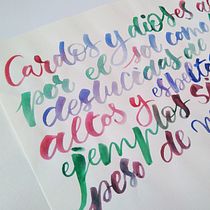 Cardos y dioses a
por el sol como
deslucidas de
altos y esbelto
ejemplos si
peso de